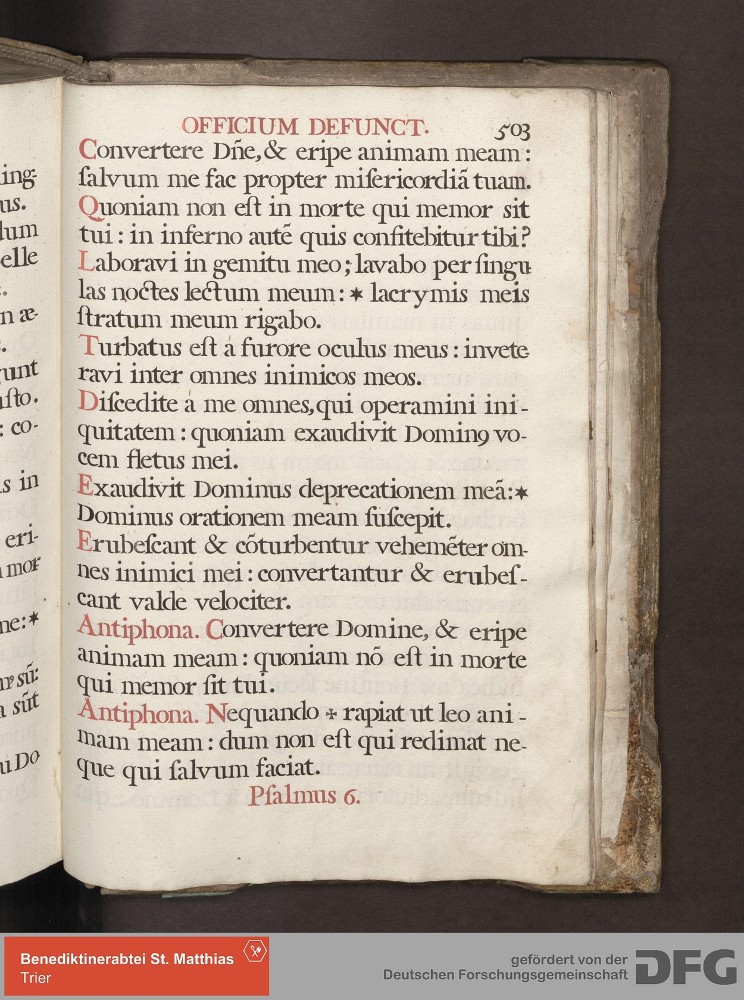 ing-
us.
lum
elle
n æ-
unt
uſto.
: co-
s in
eri-
mor
ne:*
sũ:
sũt
u Do
OFFICIUM DEFUNCT. 503
Convertere Dñe, & eripe animam meam:
ſalvum me fac propter miſericordiã tuam.
Quoniam non eſt in morte qui memor sit
tui: in inferno autẽ quis confitebitur tibi?
Laboravi in gemitu meo; lavabo per ſingu
las noctes lectum meum: * lacrymis meis
ſtratum meum rigabo.
Turbatus eſt à furore oculus meus: invete
ravi inter omnes inimicos meos.
Diſcedite à me omnes, qui operamini ini-
quitatem: quoniam exaudivit Dominꝰ vo-
cem fletus mei.
Exaudivit Dominus deprecationem meã:*
Dominus orationem meam ſuſcepit.
Erubeſcant & cõturbentur vehemẽter om-
nes inimici mei: convertantur & erubeſ-
cant valde velociter.
Antiphona. Convertere Domine, & eripe
animam meam: quoniam nõ eſt in morte
qui memor ſit tui.
Antiphona. Nequando + rapiat ut leo ani-
mam meam: dum non eſt qui redimat ne-
que qui ſalvum faciat.
Pſalmus 6.
Benediktinerabtei St. Matthias
Trier
gefördert von der
Deutschen Forschungsgemeinschaft DFG